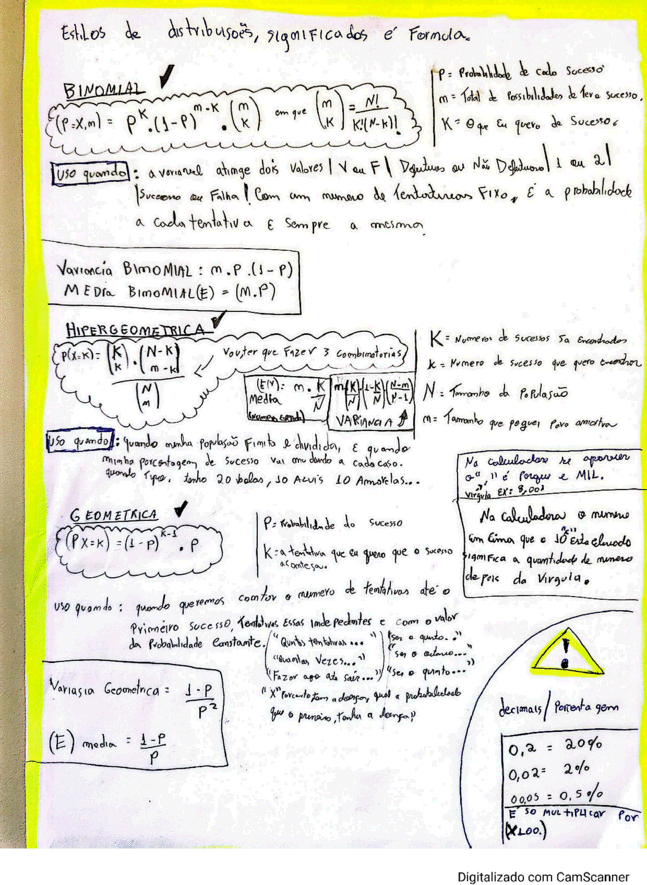 Estilos de distribuisoẽs, significados é Formula.
BINOMIAL
(P=X,m) = P^K.(1-P)^m-K.(m K) em que (m K) = N!/K!(N-K)!
P = Probabilidade de cada Sucesso
m = Total de Possibilidades de Tera Sucesso.
K = O que Eu quero de Sucesso.
USO quando: a variavel atinge dois Valores | V ou F | Defeituoso ou Não Defeituoso | 1 ou 2 |
| Sucesso ou Falha | Com um numero de Tentativas Fixo, É a probabilidade
a cada tentativa E Sempre a mesma.
Variancia BinoMIAL : m.P.(1-P)
MEDIA BinomIAL(E) = (m.P)
HIPERGEOMETRICA
P(X=K) = (K k).(N-K m-k)/(N m)
Vou ter que Fazer 3 Combinatorias
(E(X) = m.K/N
Media
VARIANCIA
K = Numeros de Sucessos Ja Encontrados
k = Numero de Sucesso que quero Encontrar
N = Tamanho da População
m = Tamanho que peguei Para amostra
USO quando: quando minha população Finita e dividida, E quando
minha porcentagem de Sucesso vai mudando a cada caso.
quando Tipo, tenho 20 bolas, 10 Azuis 10 Amarelas...
Na Calculadora se aparecer
o "," é Porque e MIL.
virgula EX: 8,001
Na Calculadora o numero
em Cima que o 10 Esta Elevado
significa a quantidade de numero
depois da Virgula.
GEOMETRICA
(P X=K) = (1-P)^K-1 . P
P = Probabilidade do Sucesso
K = a tentativa que eu quero que o Sucesso
aconteça.
USO quando: quando queremos contar o numero de tentativas até o
Primeiro Sucesso, Tentativas Essas Independentes e com o valor
da Probabilidade Constante.
("Quantas tentativas..."
"Quantas Vezes..."
"Fazer algo até sair...")
("Ser o quarto..."
"Ser o oitavo..."
"Ser o quinto..."
"X" Porcento tem a doença, qual a probabilidade
que o primeiro, tenha a doença)
Variasia Geometrica = 1-P/P²
(E) media = 1-P/P
!
decimais/Porcentagem
0,2 = 20%
0,02 = 2%
00,05 = 0,5%
E SO MULTIPLICAR POR
(X100.)
Digitalizado com CamScanner